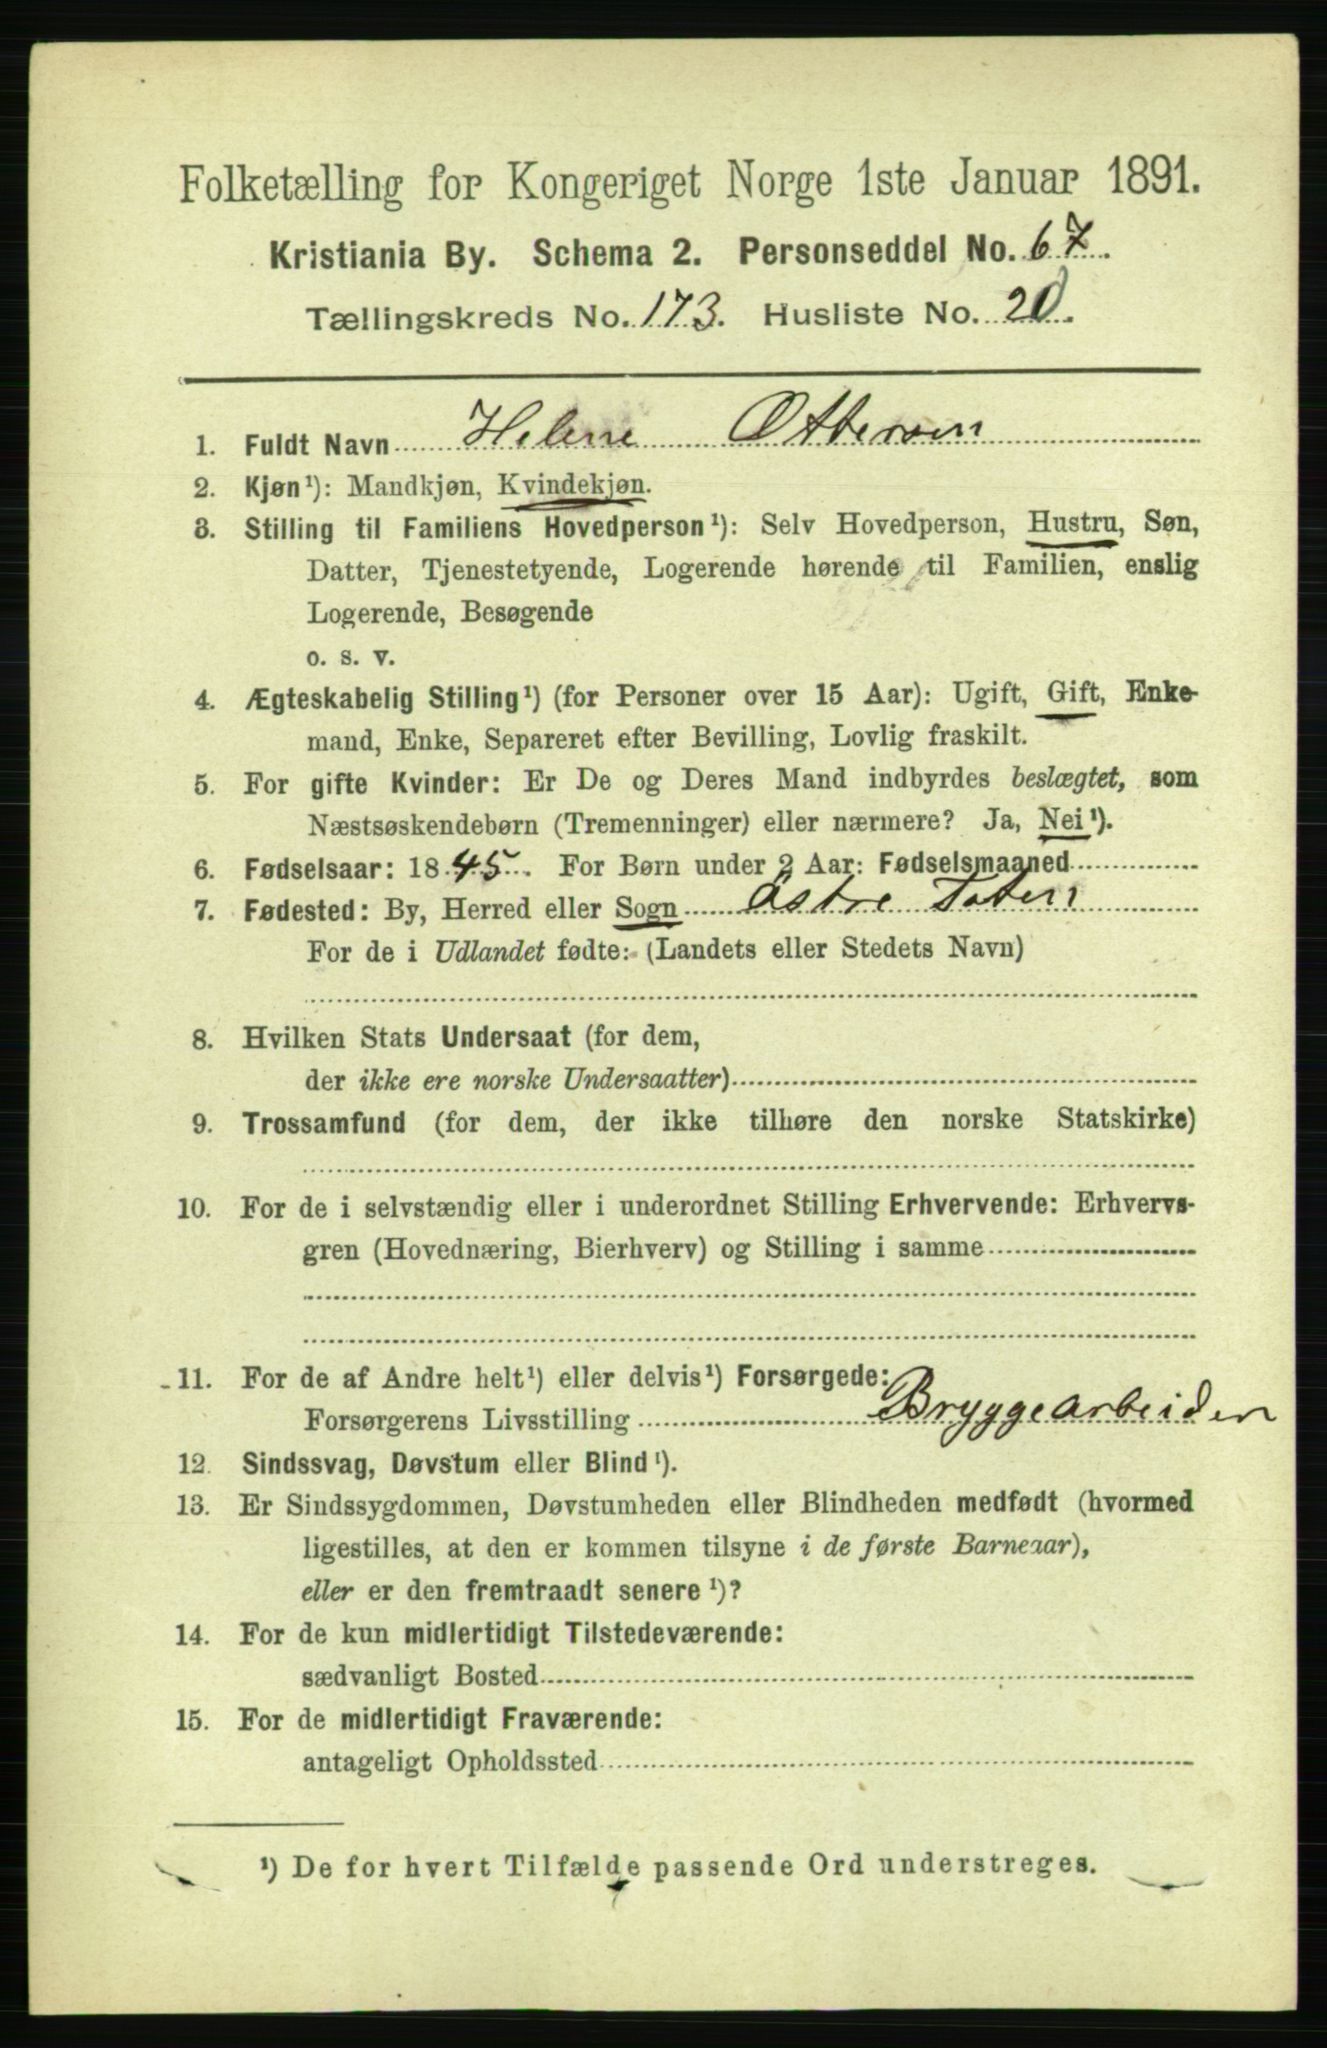 Folketælling for Kongeriget Norge 1ste Januar 1891.
Kristiania By. Schema 2. Personseddel No. 67.
Tællingskreds No. 173. Husliste No. 20.
1. Fuldt Navn Helene Ottersen
2. Kjøn¹): Mandkjøn, Kvindekjøn.
3. Stilling til Familiens Hovedperson¹): Selv Hovedperson, Hustru, Søn,
Datter, Tjenestetyende, Logerende hørende til Familien, enslig
Logerende, Besøgende
o. s. v.
4. Ægteskabelig Stilling¹) (for Personer over 15 Aar): Ugift, Gift, Enke-
mand, Enke, Separeret efter Bevilling, Lovlig fraskilt.
5. For gifte Kvinder: Er De og Deres Mand indbyrdes beslægtet, som
Næstsøskendebørn (Tremenninger) eller nærmere? Ja, Nei¹).
6. Fødselsaar: 1845. For Børn under 2 Aar: Fødselsmaaned
7. Fødested: By, Herred eller Sogn Östre Toten
For de i Udlandet fødte: (Landets eller Stedets Navn)
8. Hvilken Stats Undersaat (for dem,
der ikke ere norske Undersaatter)
9. Trossamfund (for dem, der ikke tilhøre den norske Statskirke)
10. For de i selvstændig eller i underordnet Stilling Erhvervende: Erhvervs-
gren (Hovednæring, Bierhverv) og Stilling i samme
11. For de af Andre helt¹) eller delvis¹) Forsørgede:
Forsørgerens Livsstilling Bryggearbeider
12. Sindssvag, Døvstum eller Blind¹).
13. Er Sindssygdommen, Døvstumheden eller Blindheden medfødt (hvormed
ligestilles, at den er kommen tilsyne i de første Barneaar),
eller er den fremtraadt senere¹)?
14. For de kun midlertidigt Tilstedeværende:
sædvanligt Bosted
15. For de midlertidigt Fraværende:
antageligt Opholdssted
¹) De for hvert Tilfælde passende Ord understreges.